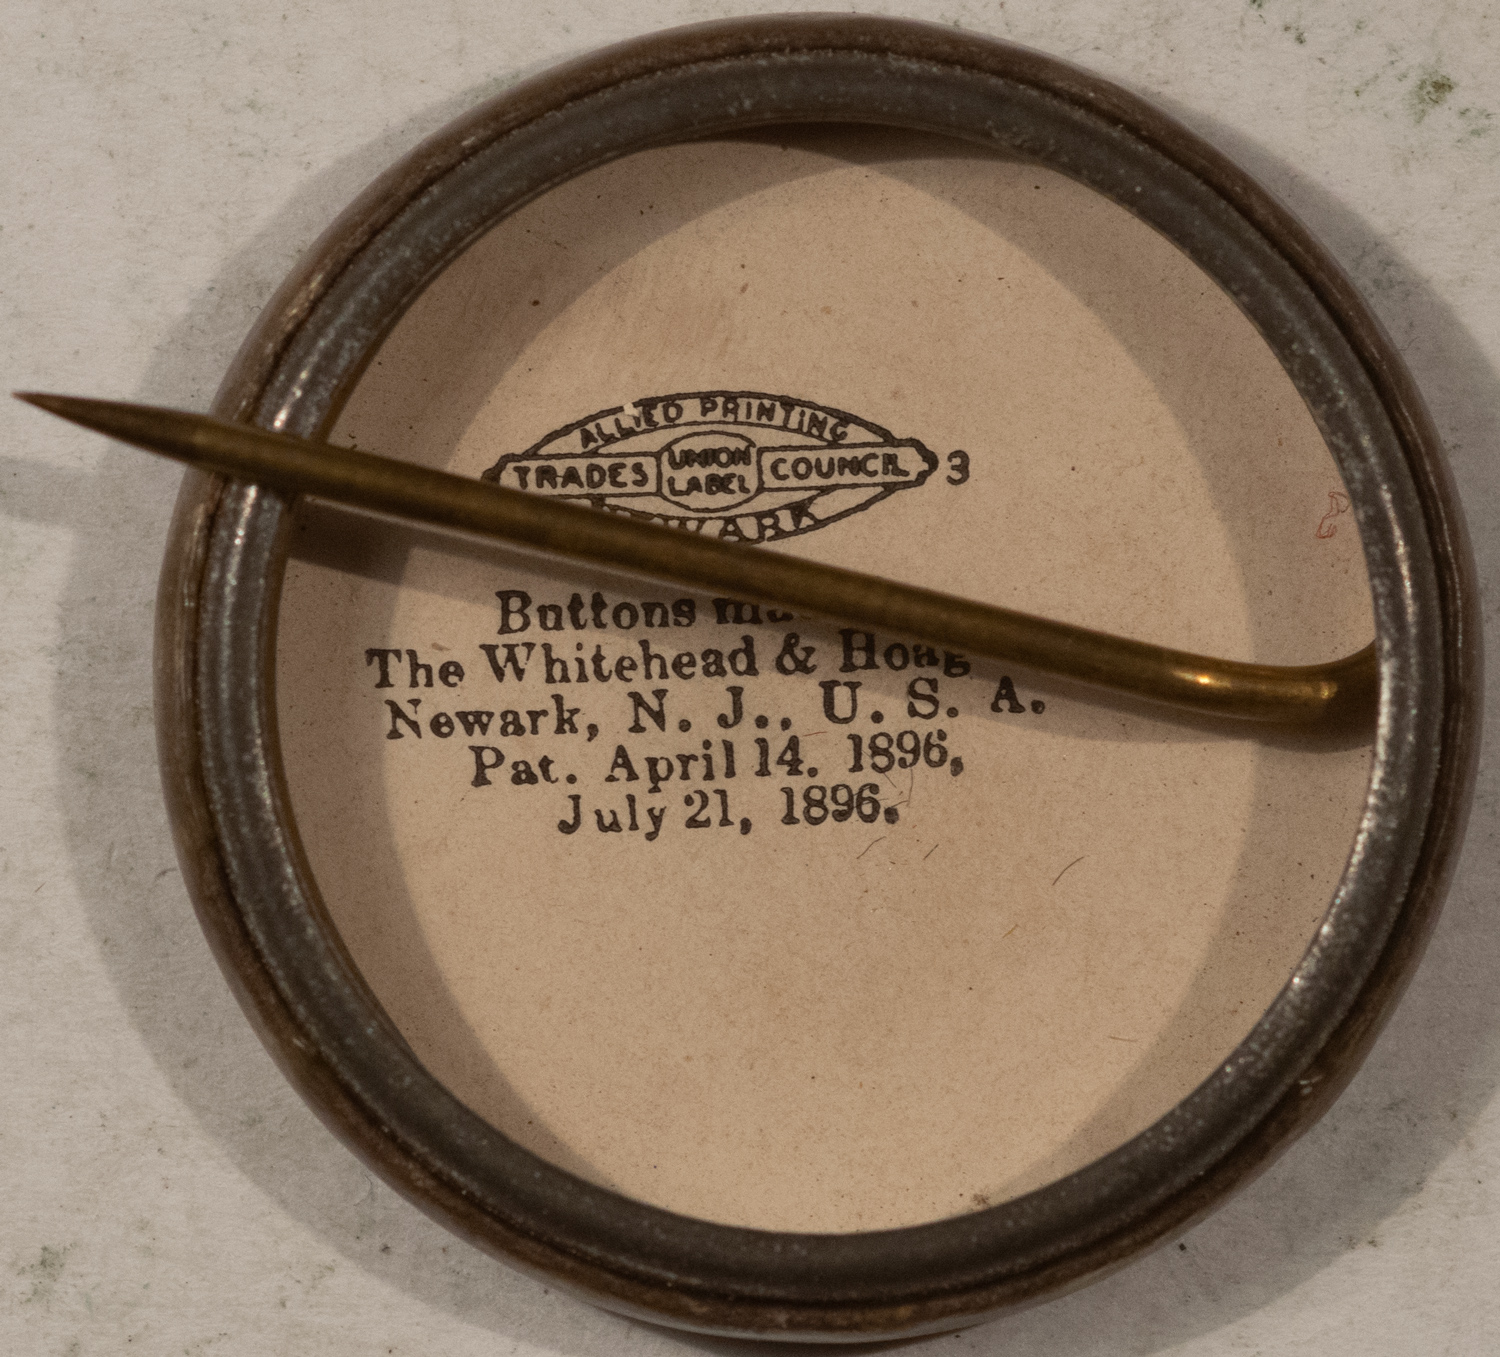 ALLIED PRINTING
TRADES UNION LABEL COUNCIL 3
NEWARK
Buttons
The Whitehead & Hoag
Newark, N. J., U. S. A.
Pat. April 14. 1896,
July 21, 1896.